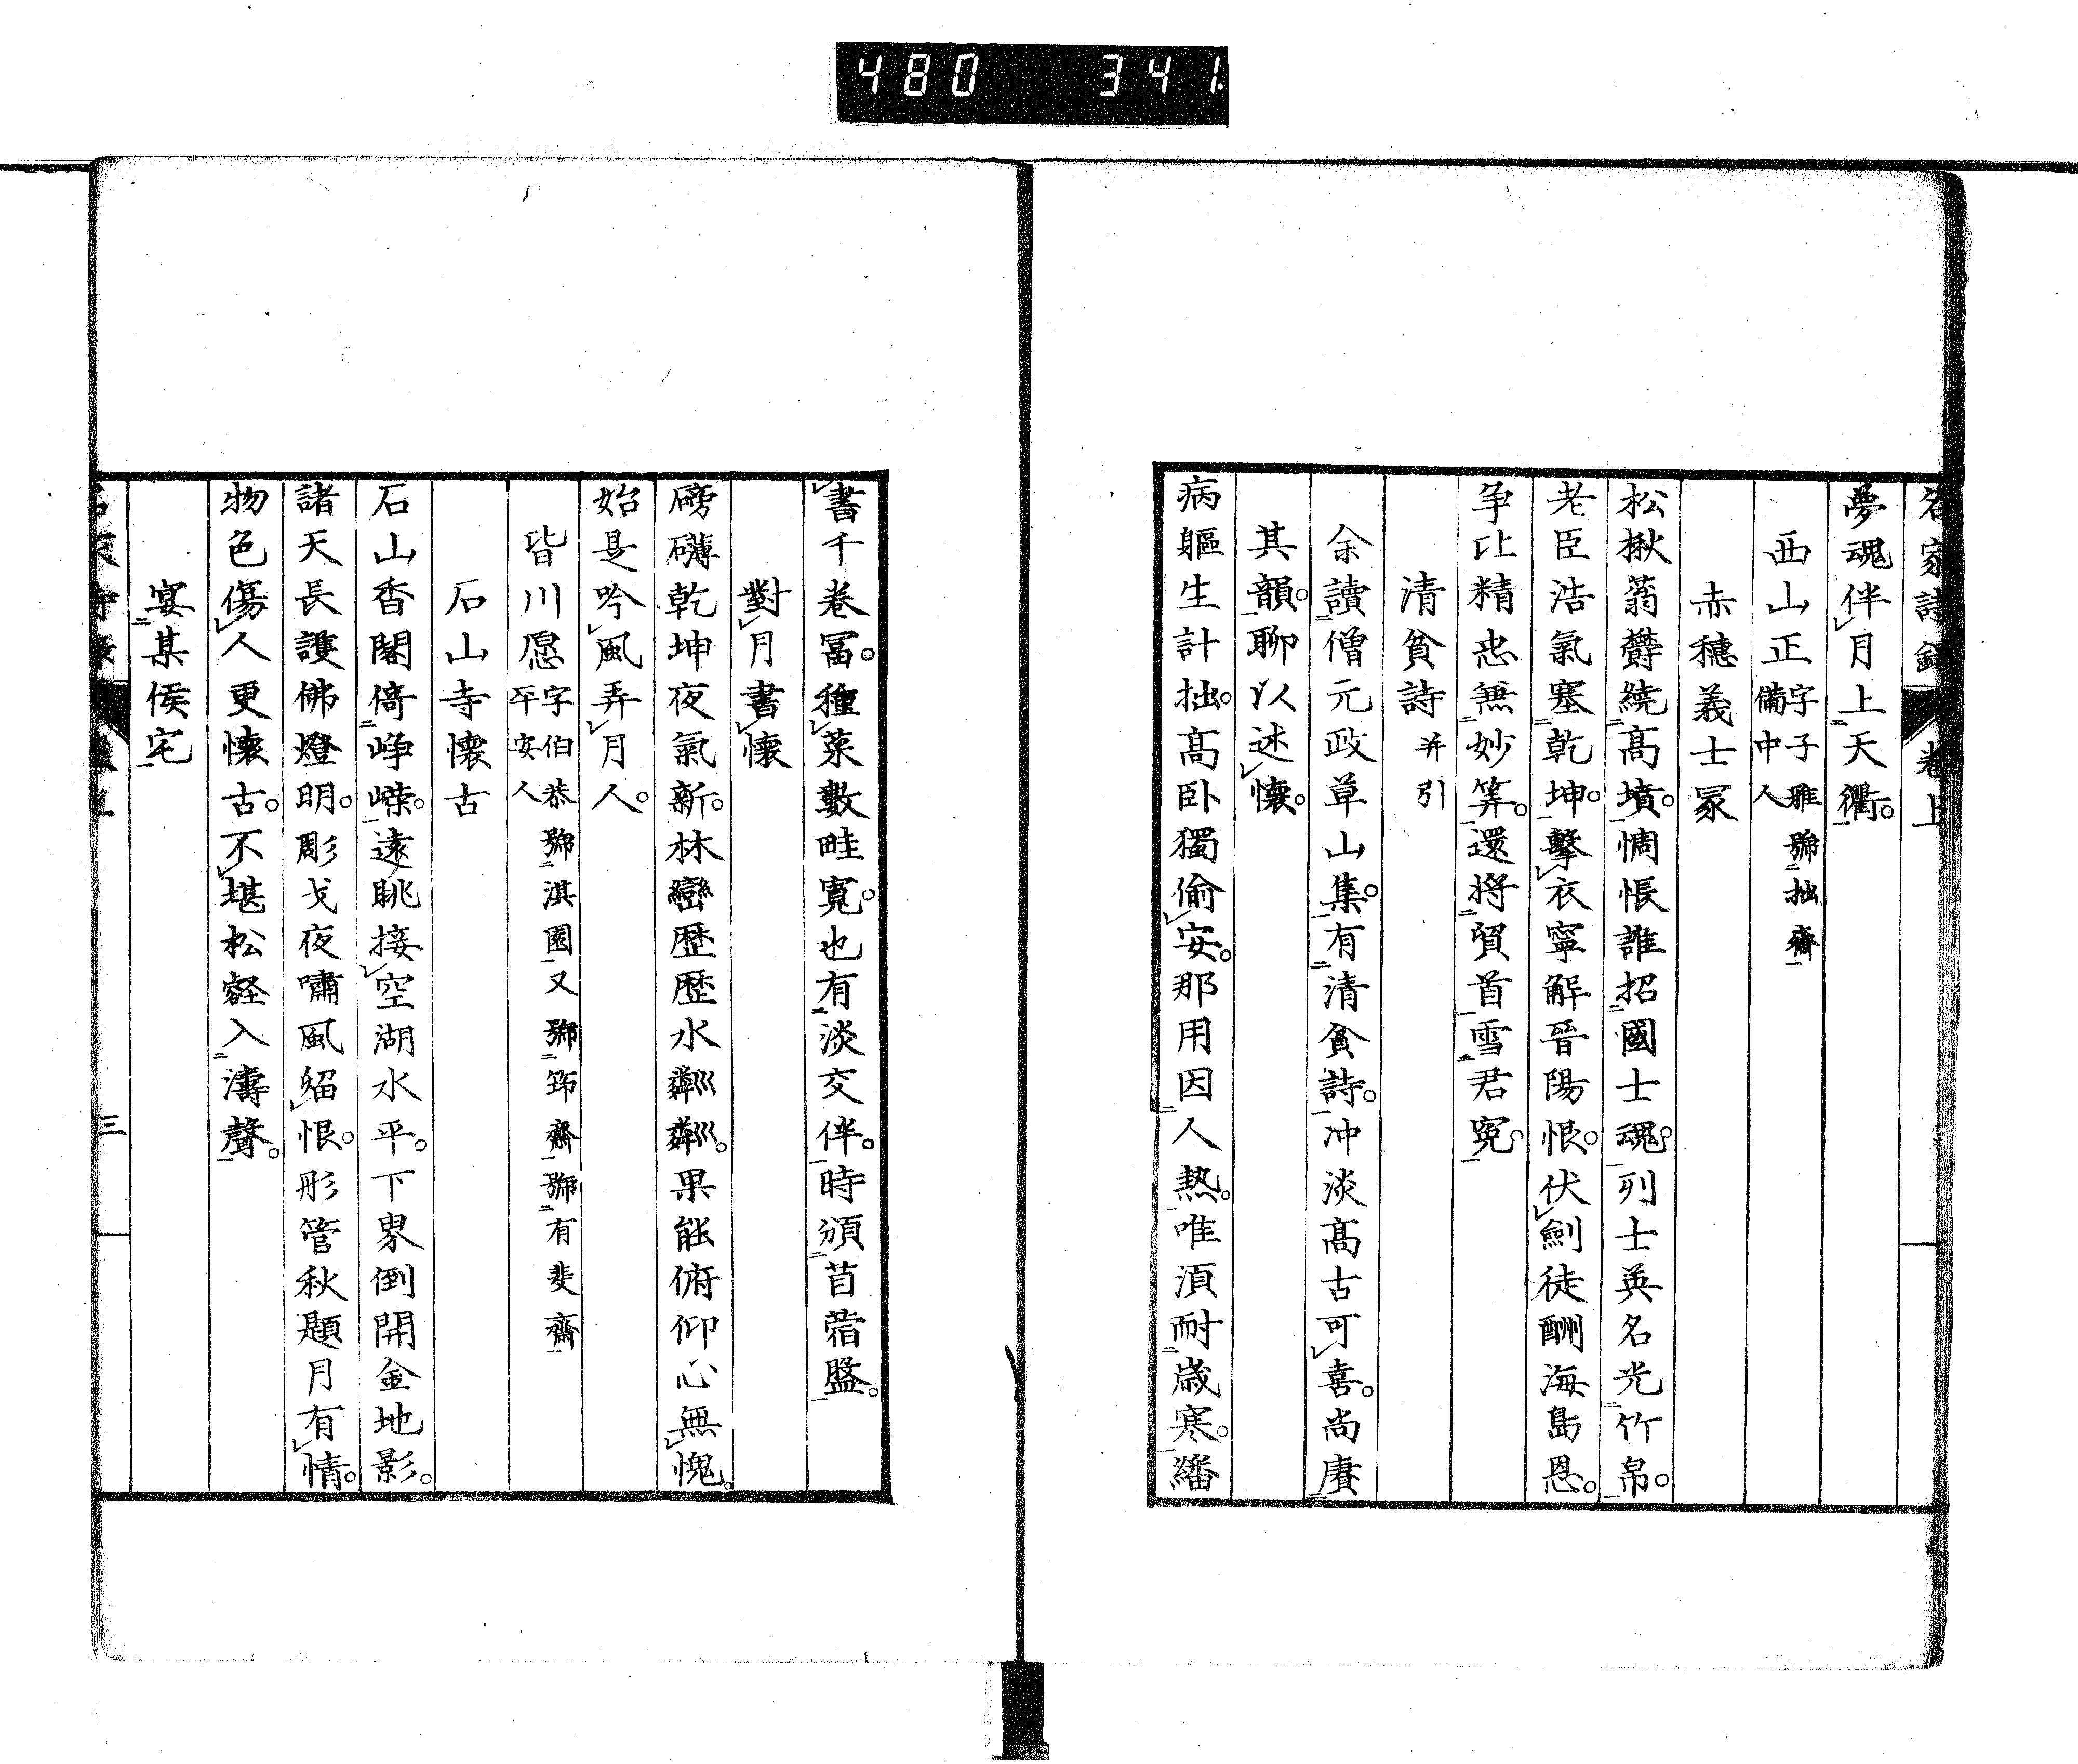 480 341
名家詩鈔 卷上
夢魂伴月上天衢。
西山正 字子雅號拙齋 備中人
赤穗義士冢
松楸蓊欝繞髙墳。惆悵誰招國士魂。列士英名光竹帛。
老臣浩氣塞乾坤。擊衣寧解晉陽恨。伏劍徒酬海島恩。
争比精忠無妙筭。還將貿首雪君寃。
清貧詩 并引
余讀僧元政草山集。有清貧詩。冲淡髙古可喜。尚賡
其韻。聊以述懷。
病軀生計拙。髙卧獨偷安。那用因人熱。唯須耐歲寒。繙
書千巻冨。種菜數畦寬。也有淡交伴。時頒苜蓿盤。
對月書懷
磅礴乾坤夜氣新。林巒歷歷水粼粼。果能俯仰心無愧。
始是吟風弄月人。
皆川愿 字伯恭號淇園又號筇齋號有斐齋 平安人
石山寺懷古
石山香閣倚崢嶸。遠眺接空湖水平。下界倒開金地影。
諸天長護佛燈明。彫戈夜嘯風留恨。彤管秋題月有情。
物色傷人更懷古。不堪松壑入濤聲。
宴某侯宅
三